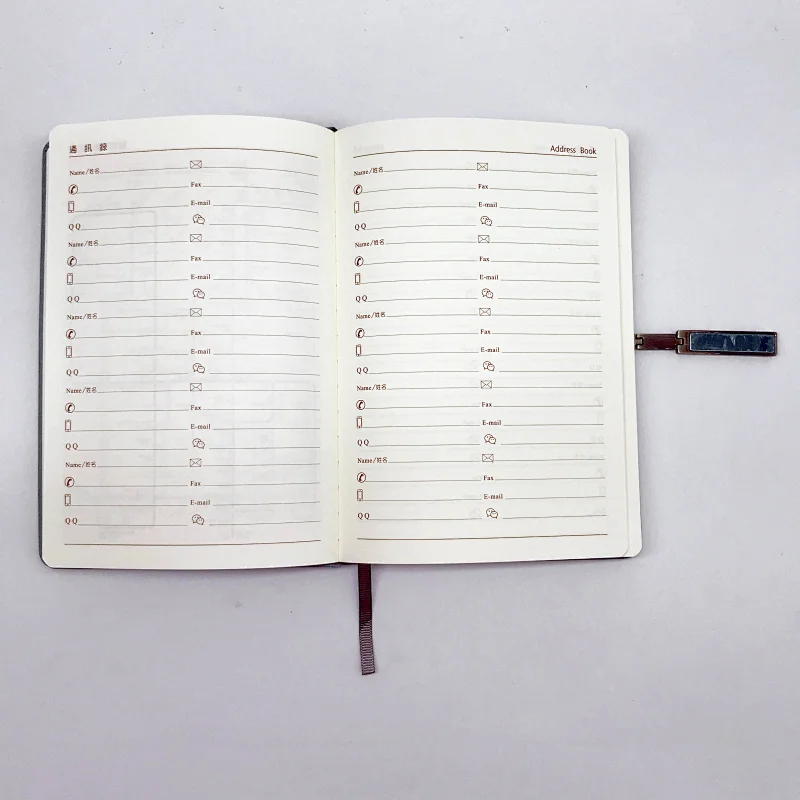 通 訊 錄
Name/姓名
Fax
E-mail
QQ
Name/姓名
Fax
E-mail
QQ
Name/姓名
Fax
E-mail
QQ
Name/姓名
Fax
E-mail
QQ
Name/姓名
Fax
E-mail
QQ
Address Book
Name/姓名
Fax
E-mail
QQ
Name/姓名
Fax
E-mail
QQ
Name/姓名
Fax
E-mail
QQ
Name/姓名
Fax
E-mail
QQ
Name/姓名
Fax
E-mail
QQ